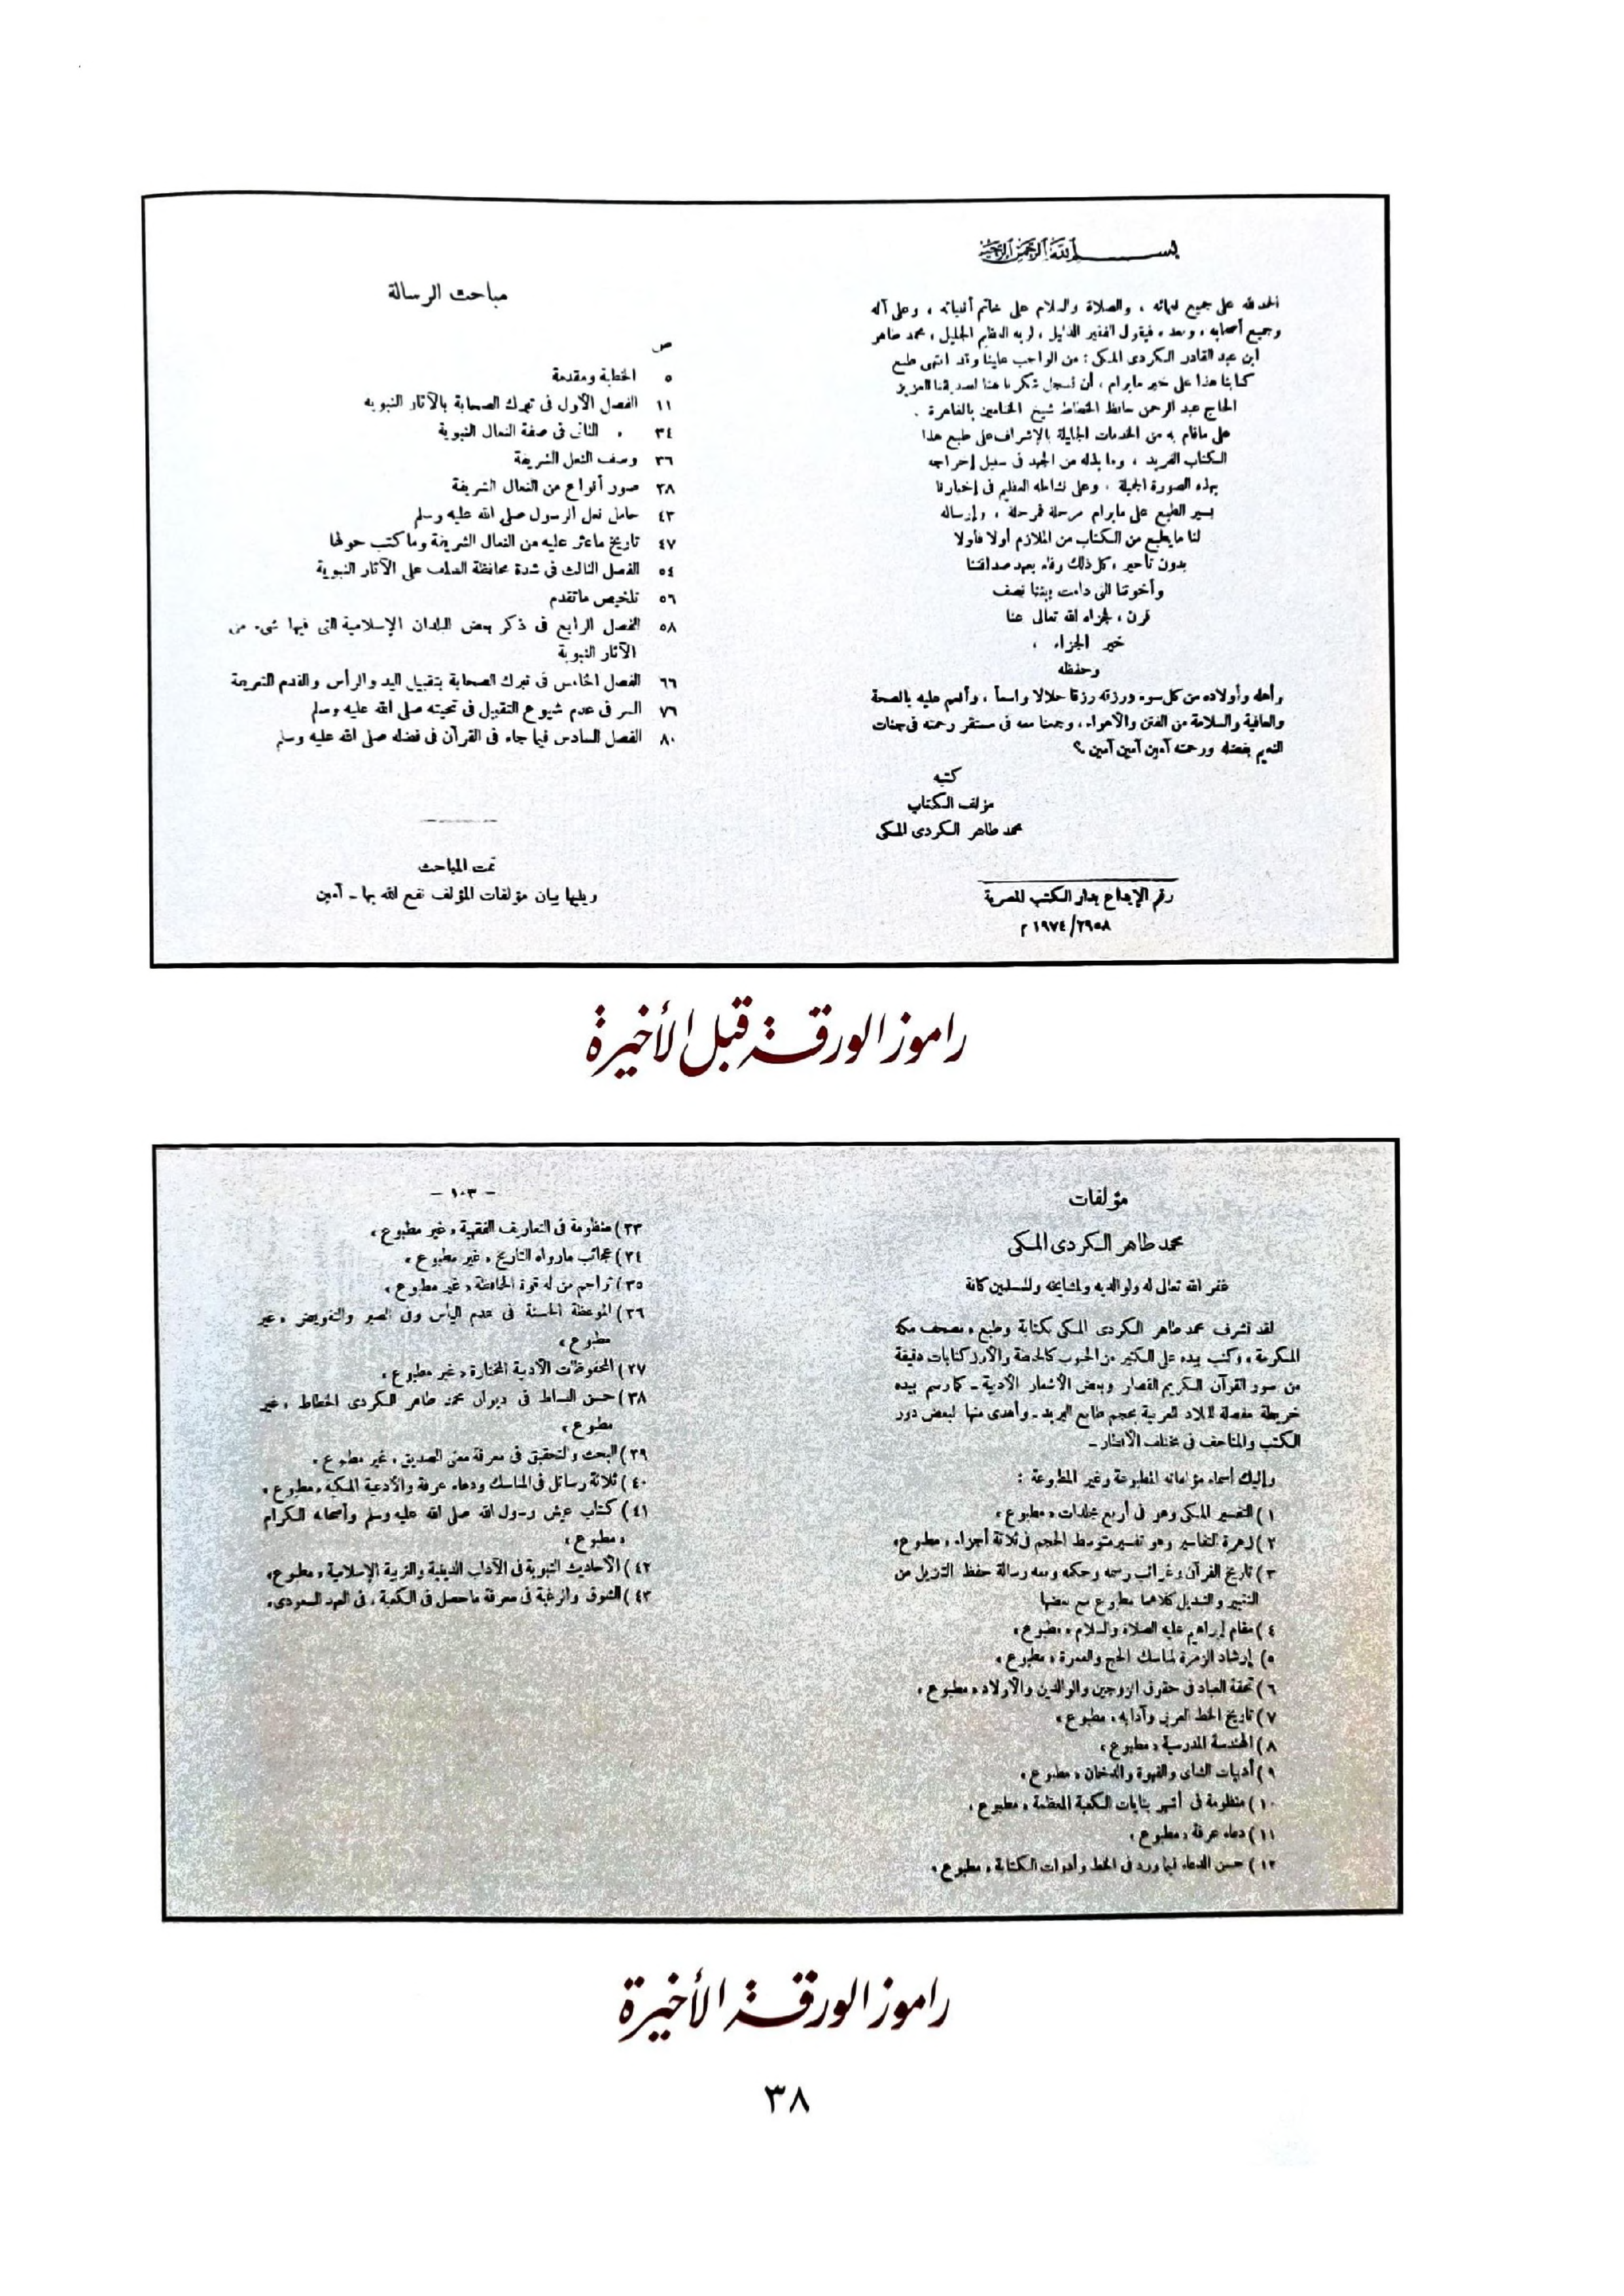 بسم الله الرحمن الرحيم
الحمد لله على جميع نعمائه ، والصلاة والسلام على خاتم أنبيائه ، وعلى آله
وجميع أصحابه ، وبعد ، فيقول الفقير الذليل ، لربه العظيم الجليل ، محمد طاهر
ابن عبد القادر الكردى المكى : من الواجب علينا وقد انتهى طبع
كتابنا هذا على خير مايرام ، أن نسجل شكرنا هنا لصديقنا العزيز
الحاج عبد الرحمن حافظ الخطاط شيخ الختامين بالقاهرة .
على ماقام به من الخدمات الجليلة بالإشراف على طبع هذا
الكتاب الفريد ، وما بذله من الجهد فى سبيل إخراجه
بهذه الصورة الجميلة ، وعلى نشاطه العظيم فى إخبارنا
بسير الطبع على مايرام مرحلة فمرحلة ، وإرساله
لنا مايطبع من الكتاب من الملازم أولا فأولا
بدون تأخير ، كل ذلك وفاء بعهد صداقتنا
وأخوتنا التى دامت بيننا نصف
قرن ، فجزاه الله تعالى عنا
خير الجزاء ،
وحفظه
وأهله وأولاده من كل سوء ورزقه رزقا حلالا واسعاً ، وأنعم عليه بالصحة
والعافية والسلامة من الفتن والأهواء ، وجمعنا معه فى مستقر رحمته فى جنات
النعيم بفضله ورحمته آمين آمين آمين ؟
كتبه
مؤلف الكتاب
محمد طاهر الكردى المكى
رقم الإيداع بدار الكتب المصرية
٢٩٥٨/ ١٩٧٤ م
مباحث الرسالة
ص
٥ الخطبة ومقدمة
١١ الفصل الأول فى تبرك الصحابة بالآثار النبويه
٣٤ » الثانى فى صفة النعال النبوية
٣٦ وصف النعل الشريفة
٣٨ صور أنواع من النعال الشريفة
٤٣ حامل نعل الرسول صلى الله عليه وسلم
٤٧ تاريخ ماعثر عليه من النعال الشريفة وماكتب حولها
٥٤ الفصل الثالث فى شدة محافظة السلف على الآثار النبوية
٥٦ تلخيص ماتقدم
٥٨ الفصل الرابع فى ذكر بعض البلدان الإسلامية التى فيها شىء من
الآثار النبوية
٦٦ الفصل الخامس فى تبرك الصحابة بتقبيل اليد والرأس والقدم الشريفة
٧٦ السر فى عدم شيوع التقبيل فى تحيته صلى الله عليه وسلم
٨٠ الفصل السادس فيما جاء فى القرآن فى فضله صلى الله عليه وسلم
تمت المباحث
ويليها بيان مؤلفات المؤلف نفع الله بها - آمين
راموز الورقة قبل الأخيرة
مؤلفات
محمد طاهر الكردى المكى
غفر الله تعالى له ولوالديه ولمشايخه وللمسلمين كافة
لقد تشرف محمد طاهر الكردى المكى بكتابة وطبع «مصحف مكة
المكرمة» وكتب بيده على الكثير من الحبوب كالحنطة والأرز كتابات دقيقة
من سور القرآن الكريم القصار وبعض الأشعار الأدبية - كما رسم بيده
خريطة مفصلة للبلاد العربية بحجم طابع البريد - وأهدى منها لبعض دور
الكتب والمتاحف فى مختلف الأقطار -
وإليك أسماء مؤلفاته المطبوعة وغير المطبوعة :
١ ) التفسير المكى وهو فى أربع مجلدات «مطبوع»
٢ ) زهرة التفاسير وهو تفسير متوسط الحجم فى ثلاثة أجزاء «مطبوع»
٣ ) تاريخ القرآن وغرائب رسمه وحكمه ومعه رسالة حفظ التنزيل من
التغيير والتبديل كلاهما مطبوع مع بعضها
٤ ) مقام إبراهيم عليه الصلاة والسلام «مطبوع»
٥ ) إرشاد الزمرة لمناسك الحج والعمرة «مطبوع»
٦ ) تحفة العباد فى حقوق الزوجين والوالدين والأولاد «مطبوع»
٧ ) تاريخ الخط العربى وآدابه «مطبوع»
٨ ) الهندسة المدرسية «مطبوع»
٩ ) أدبيات الشاى والقهوة والدخان «مطبوع»
١٠ ) منظومة فى أشهر بنايات الكعبة المعظمة «مطبوع»
١١ ) دعاء عرفة «مطبوع»
١٢ ) حسن الدعابة فيما ورد فى الخط وأدوات الكتابة «مطبوع»
- ١٠٣ -
٣٣ ) منظومة فى التعاريف الفقهية «غير مطبوع»
٣٤ ) عجائب مارواه التاريخ «غير مطبوع»
٣٥ ) تراجم من له قوة الحافظة «غير مطبوع»
٣٦ ) الموعظة الحسنة فى عدم اليأس وفى الصبر والتفويض «غير
مطبوع»
٣٧ ) المحفوظات الأدبية المختارة «غير مطبوع»
٣٨ ) حسن البساط فى ديوان محمد طاهر الكردى الخطاط «غير
مطبوع»
٣٩ ) البحث والتحقيق فى معرفة معنى الصديق «غير مطبوع»
٤٠ ) ثلاثة رسائل فى المناسك ودعاء عرفة والأدعية المكية «مطبوع»
٤١ ) كتاب عيش رسول الله صلى الله عليه وسلم وأصحابه الكرام
«مطبوع»
٤٢ ) الأحاديث النبوية فى الآداب الدينية والتربية الإسلامية «مطبوع»
٤٣ ) الشوق والرغبة فى معرفة ماحصل فى الكعبة «فى العهد السعودى»
راموز الورقة الأخيرة
٣٨